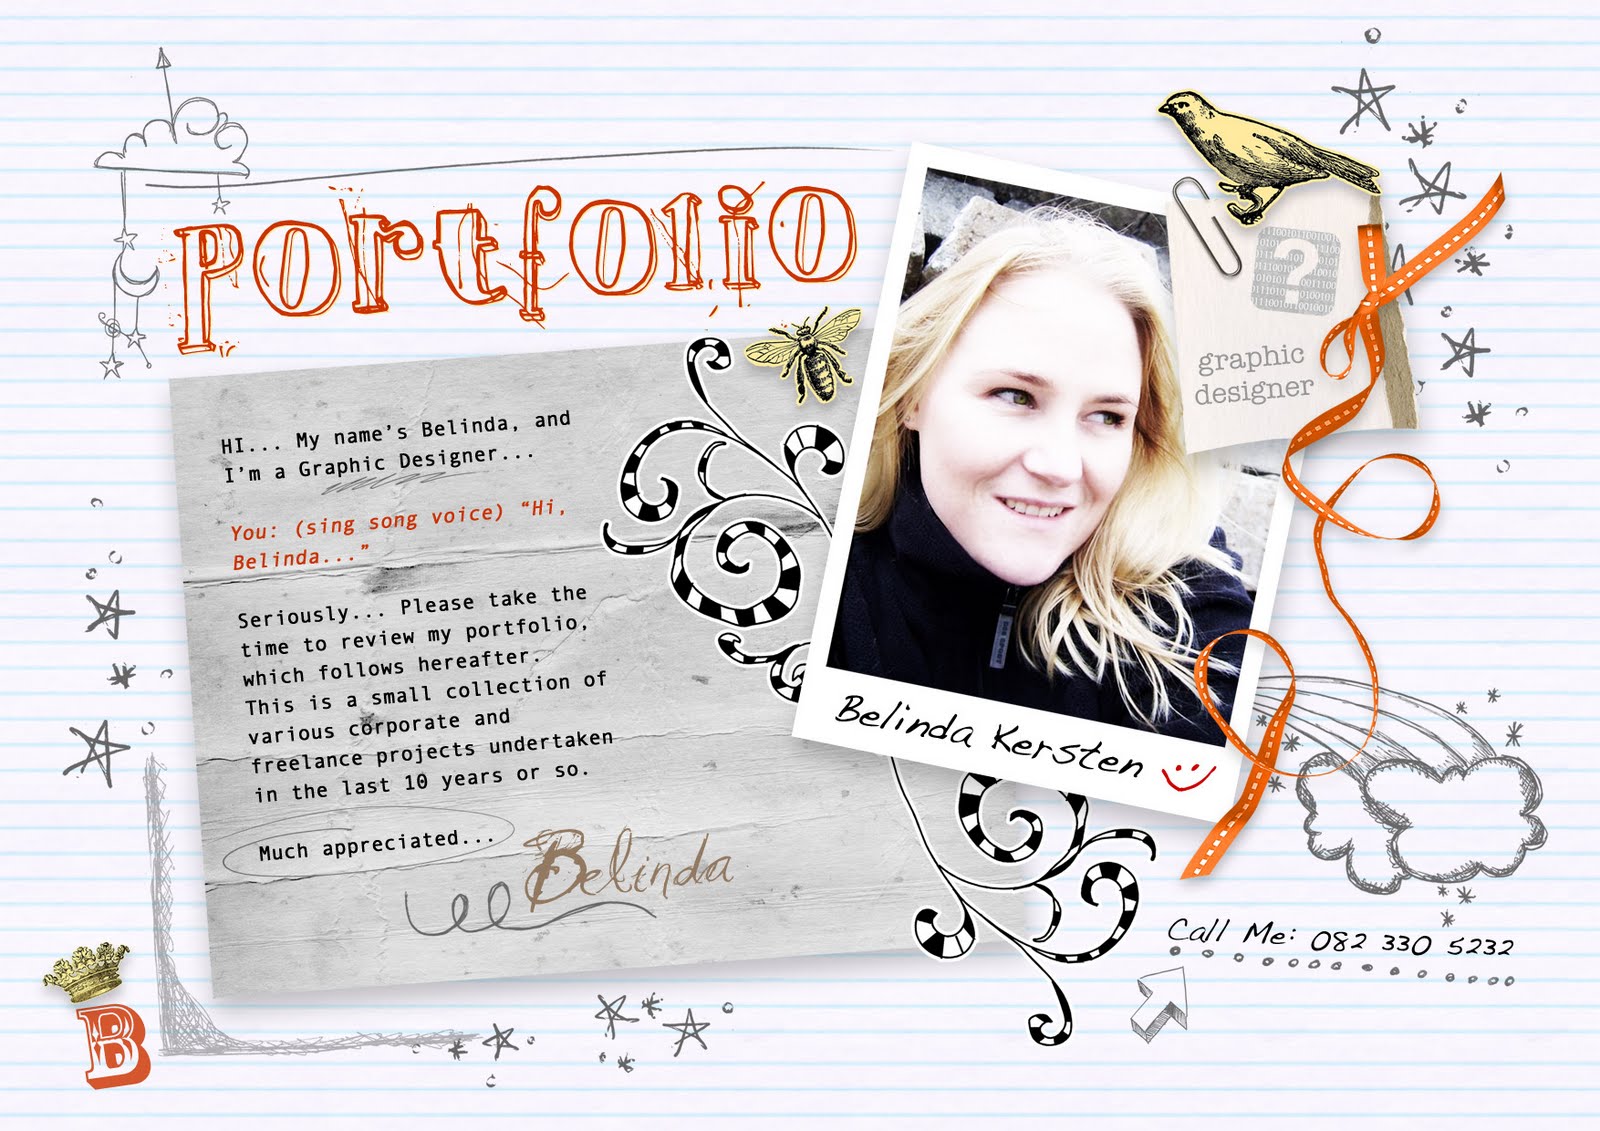 portfolio
HI... My name's Belinda, and
I'm a Graphic Designer...
You: (sing song voice) “Hi,
Belinda...”
Seriously... Please take the
time to review my portfolio,
which follows hereafter.
This is a small collection of
various corporate and
freelance projects undertaken
in the last 10 years or so.
Much appreciated...
Belinda
Belinda Kersten
?
graphic
designer
Call Me: 082 330 5232
B